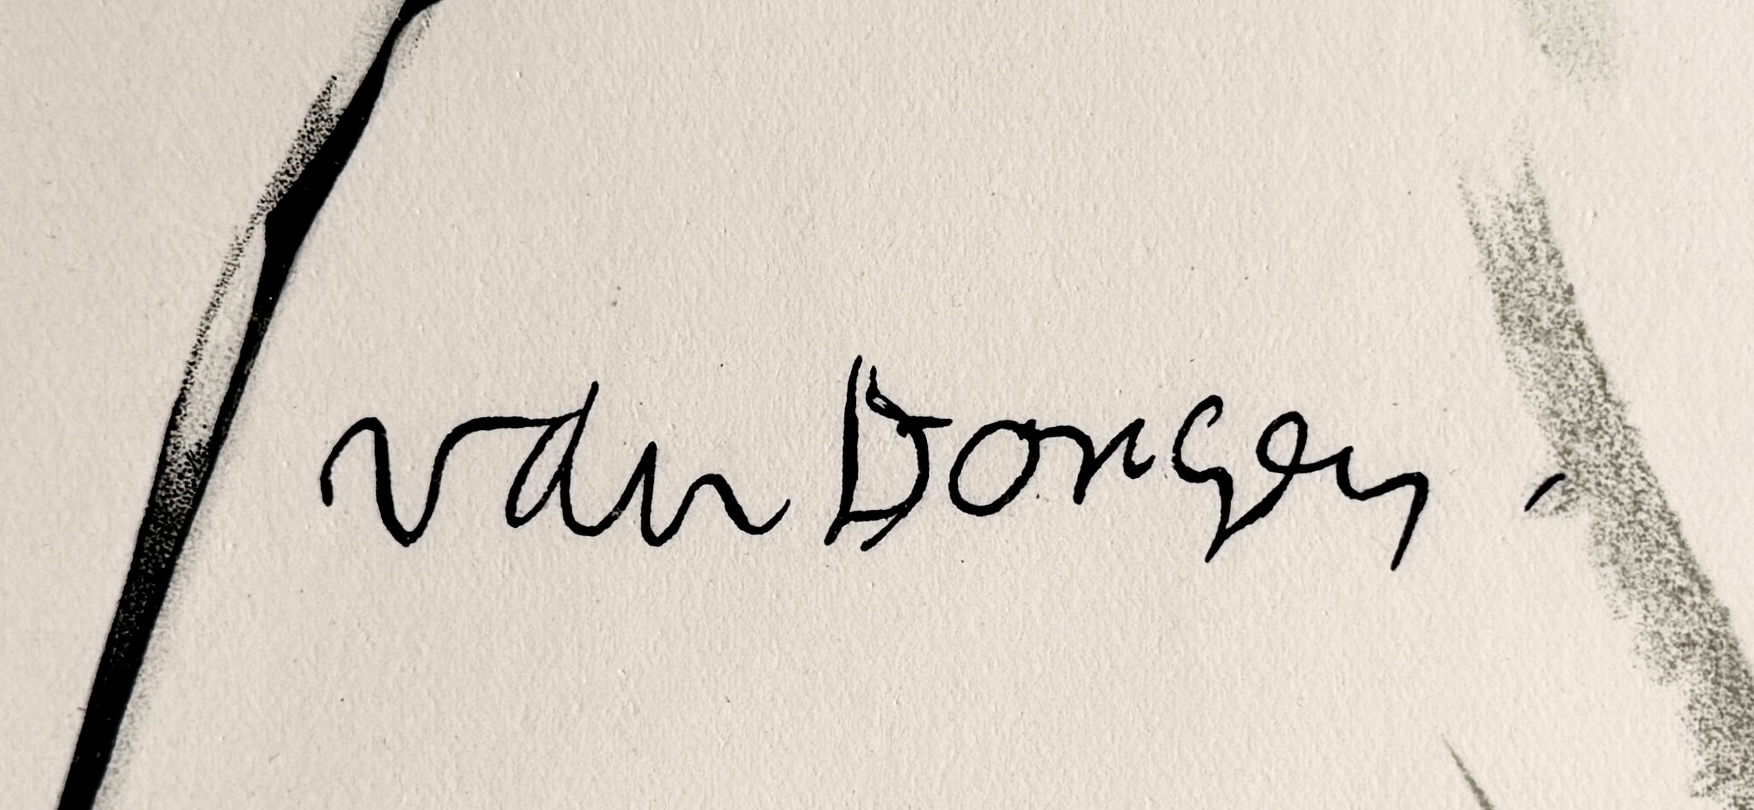 van Dongen.